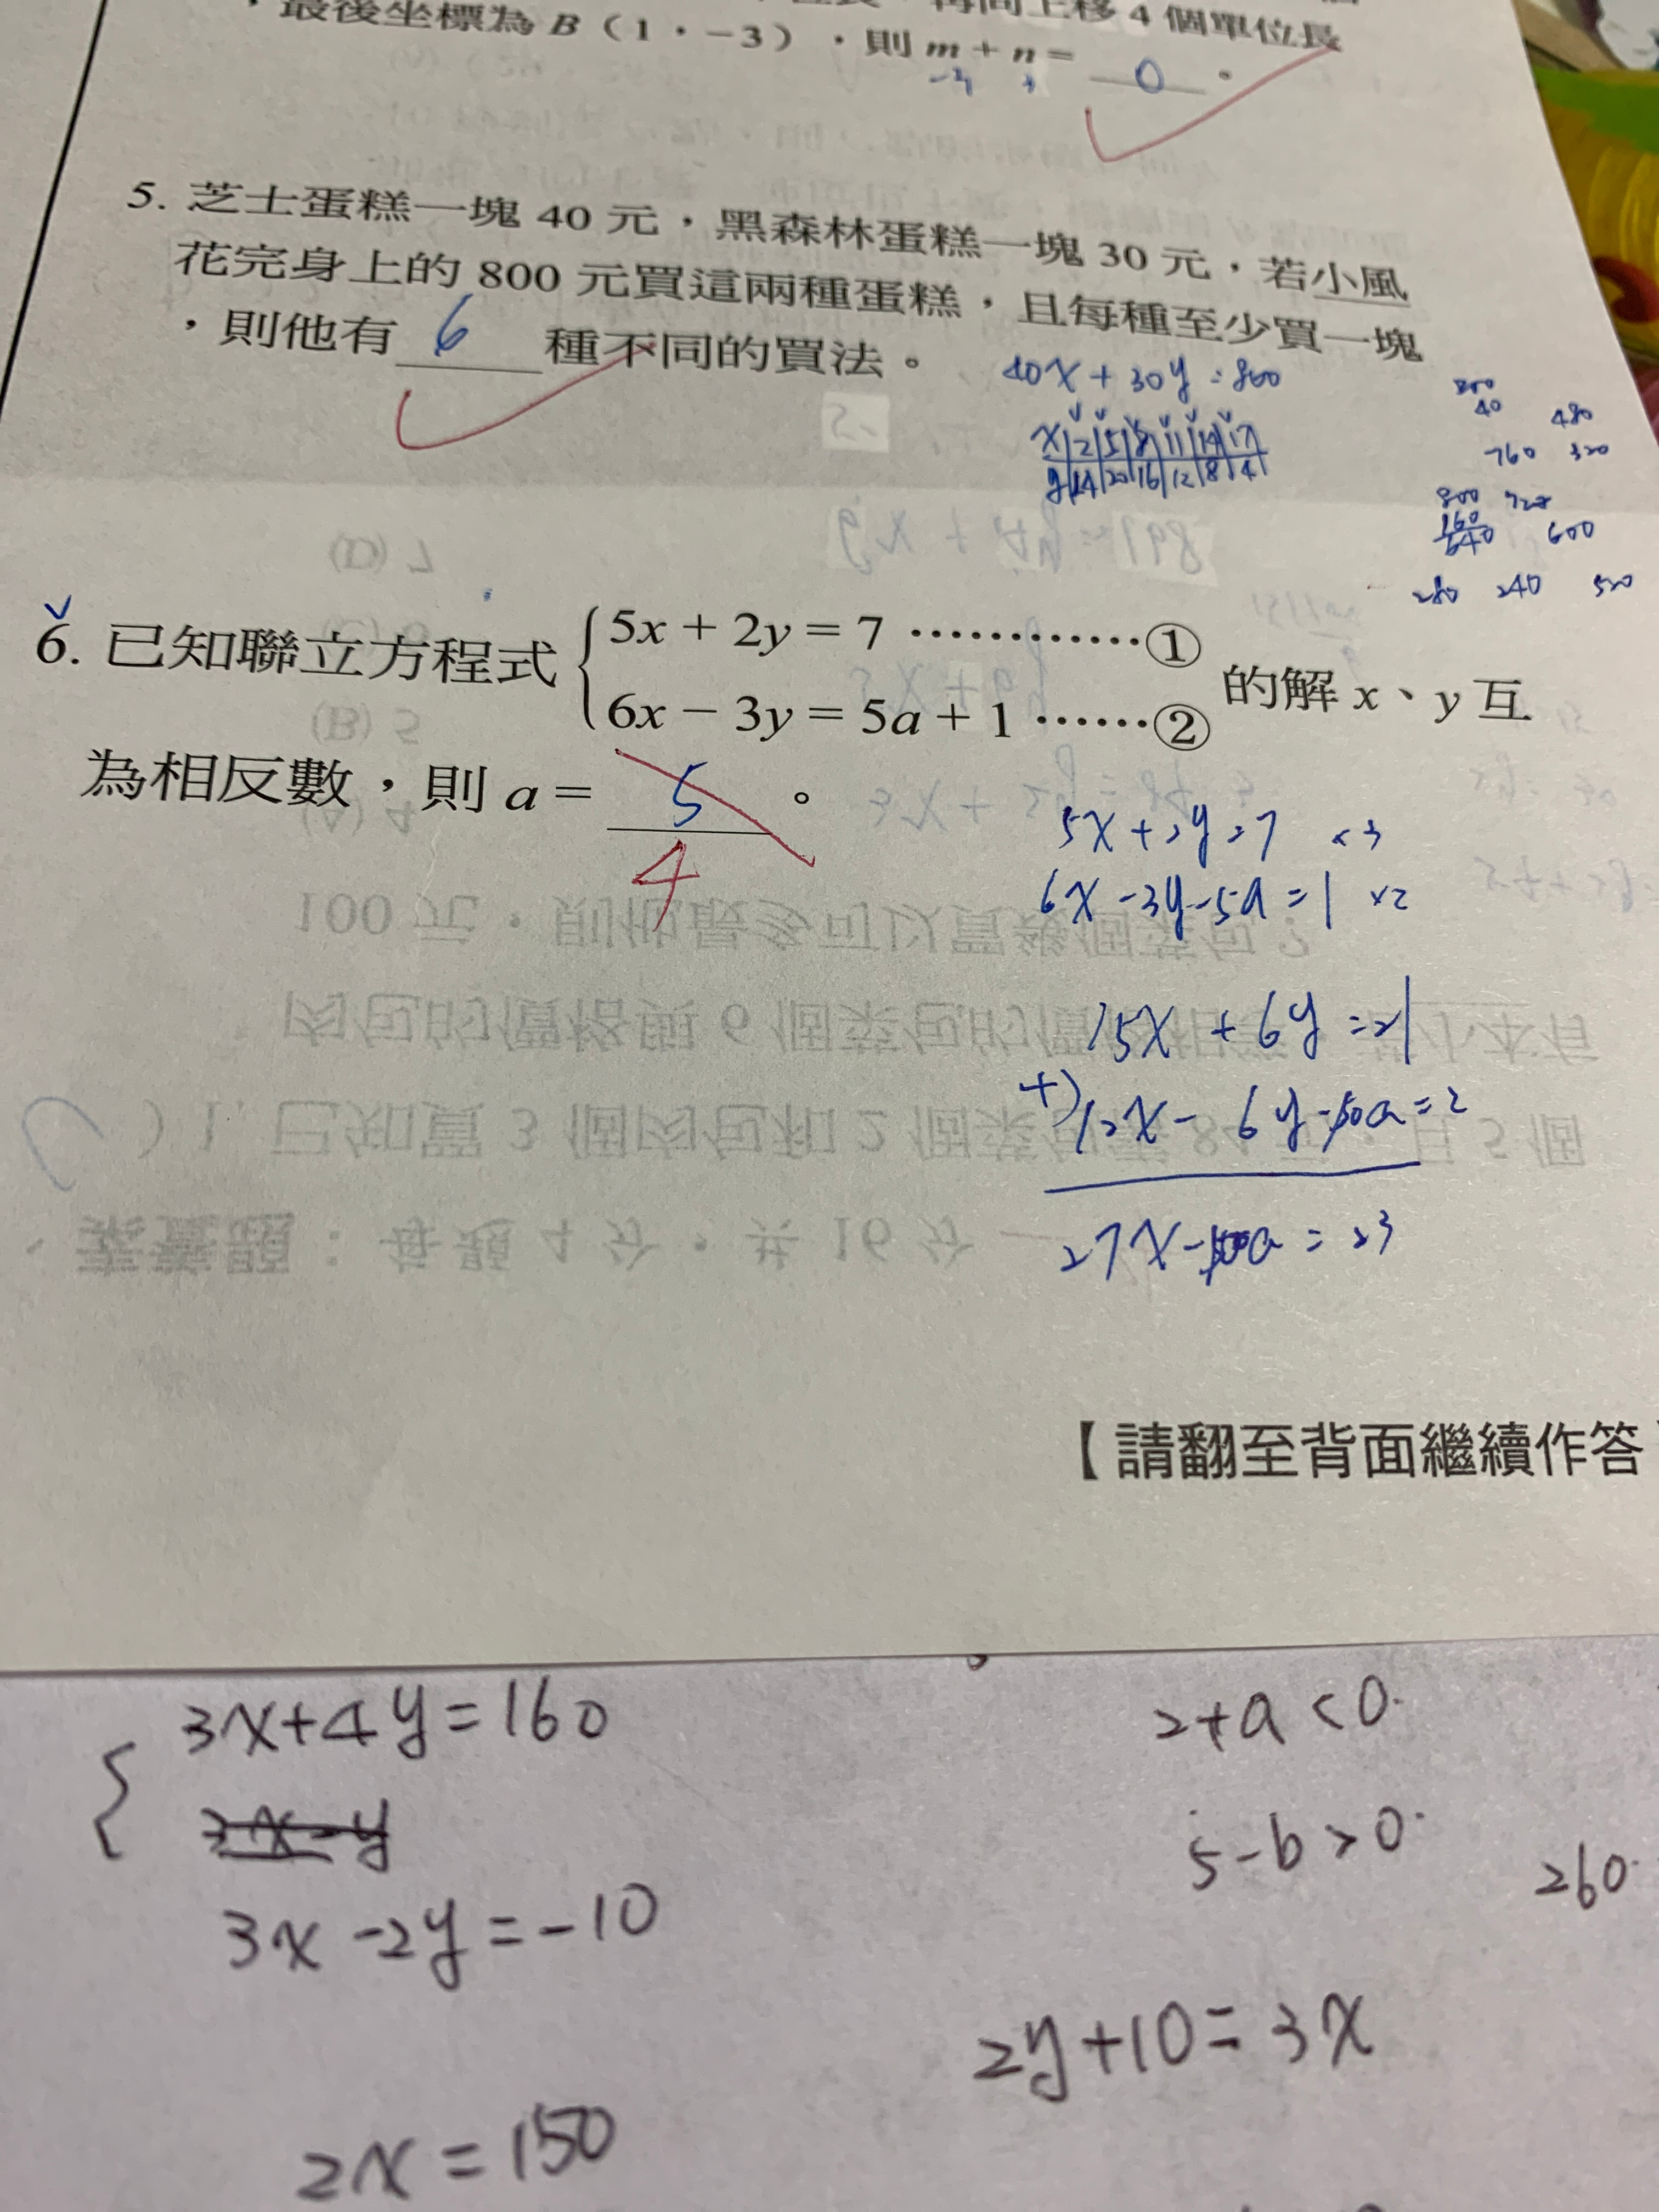 最後坐標為 B（1，－3），則 m + n = 0 。
5. 芝士蛋糕一塊 40 元，黑森林蛋糕一塊 30 元，若小風
花完身上的 800 元買這兩種蛋糕，且每種至少買一塊
，則他有 6 種不同的買法。
40x + 30y = 800
x 2 5 8 11 14 17
y 24 20 16 12 8 4
800
40
480
760 320
800
160
640
600
280 240 520
6. 已知聯立方程式 5x + 2y = 7 …………① 的解 x、y 互
6x － 3y = 5a + 1 ……②
為相反數，則 a = 5 。
4
5x + 2y = 7 ×3
6x - 3y - 5a = 1 ×2
15x + 6y = 21
+) 12x - 6y - 10a = 2
27x - 10a = 23
【請翻至背面繼續作答
3x+4y=160
3x-2y=-10
2x=150
2+a<0
5-b>0
260
2y+10=3x